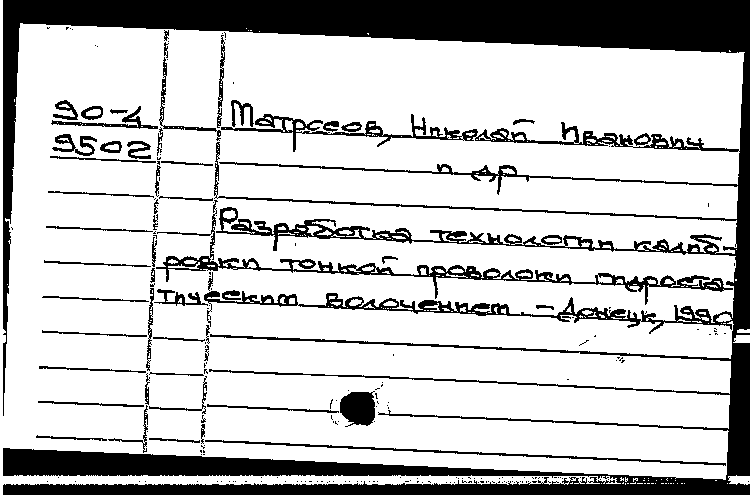 90-4
9502
Матросов, Николай Иванович
и др.
Разработка технологии калиб-
ровки тонкой проволоки гидроста-
тическим волочением. - Донецк, 1990